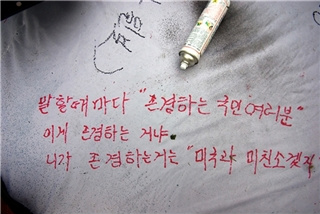 말할때마다 "존경하는 국민여러분"
이게 존경하는 거냐
니가 존경하는거는 "미국과 미친소겠지